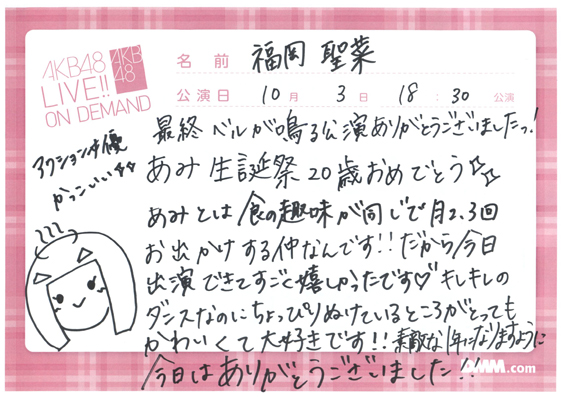 AKB48
LIVE!!
ON DEMAND
AKB
48
名前 福岡 聖菜
公演日 10月 3日 18:30 公演
最終ベルが鳴る公演ありがとうございましたっ!
アクション女優
かっこいい☆☆
あみ生誕祭20歳おめでとう☆☆
あみとは食の趣味が同じで月2.3回
お出かけする仲なんです!!だから今日
出演できてすごく嬉しかったです♡キレキレの
ダンスなのにちょっぴりぬけているところがとっても
かわいくて大好きです!!素敵な1年になりますように
今日はありがとうございました!!
DMM.com